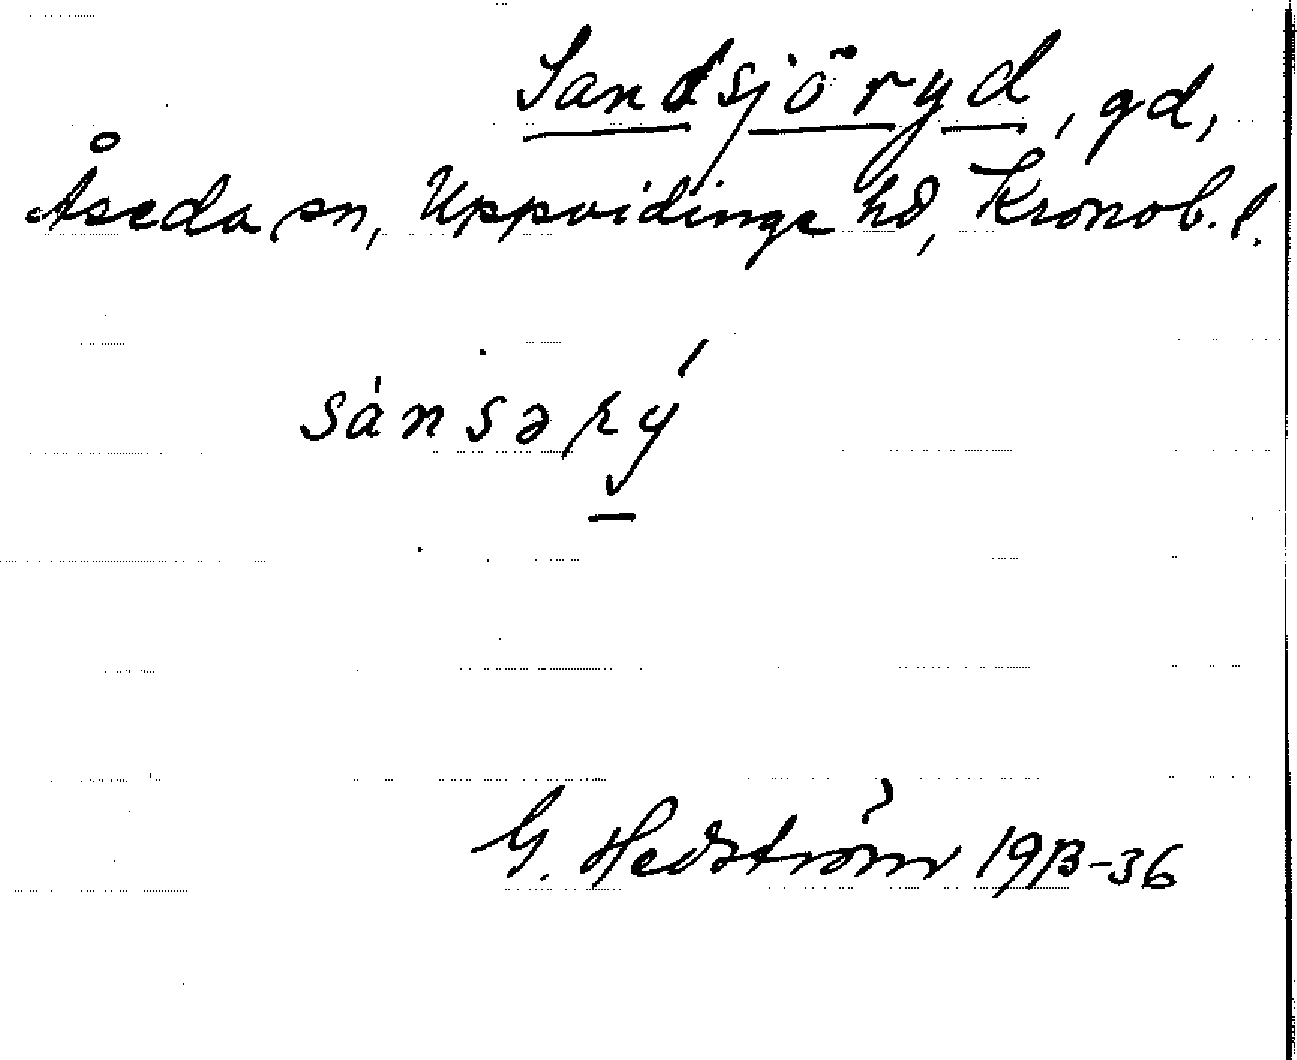 Sandsjöryd, gd,
Åseda sn, Uppvidinge hd, Kronob. l.
sánsəɽý
G. Hedström 1913-36